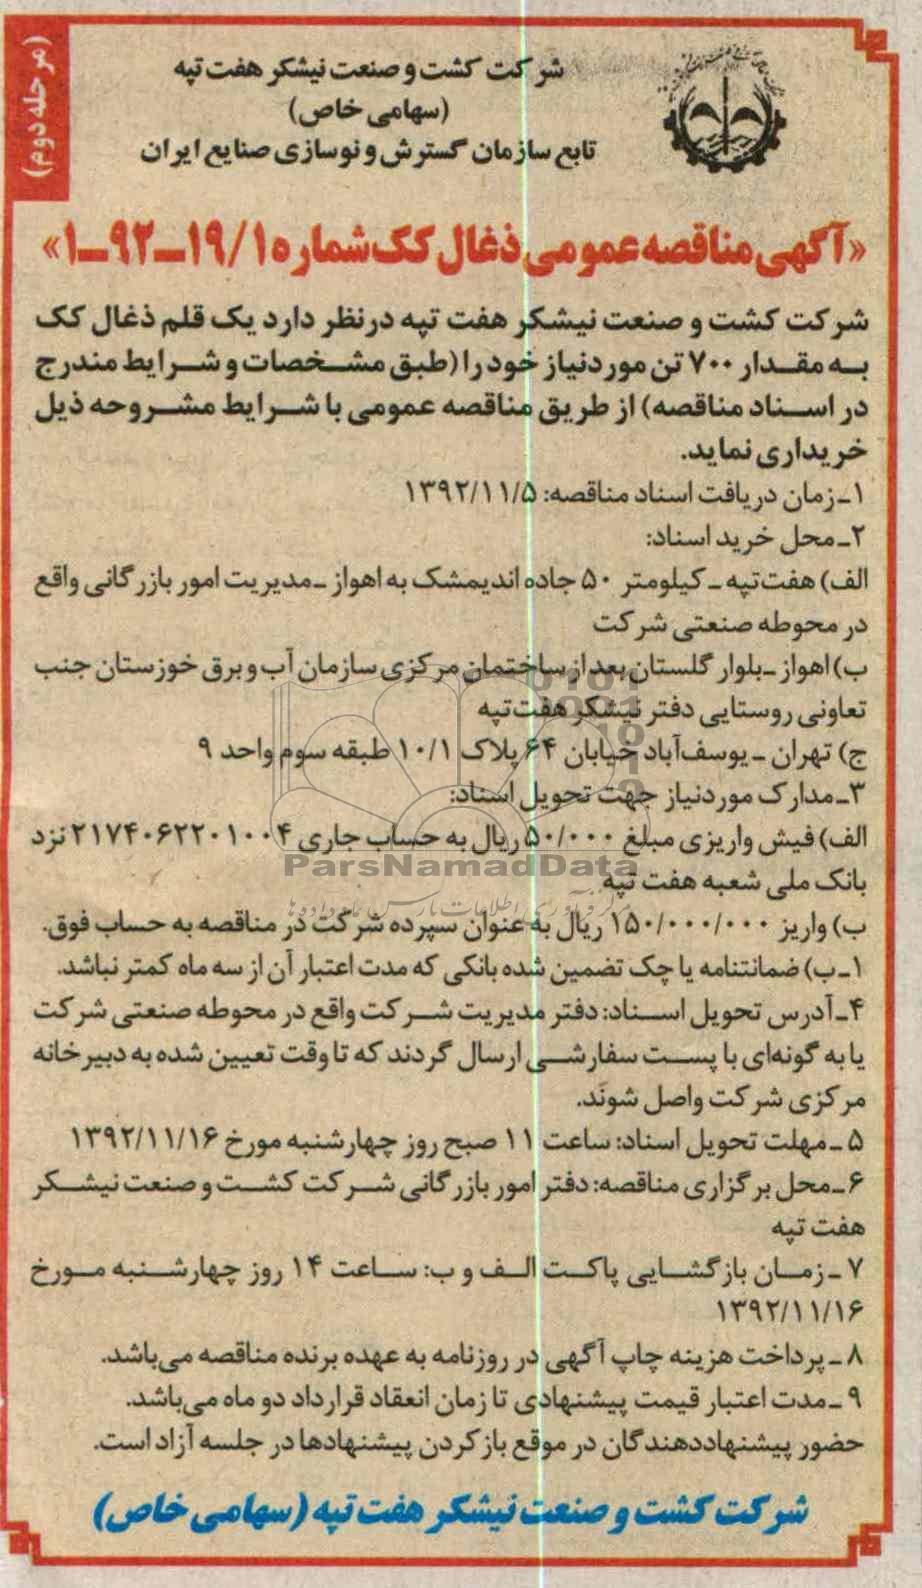 (مرحله دوم)
شرکت کشت و صنعت نیشکر هفت تپه
(سهامی خاص)
تابع سازمان گسترش و نوسازی صنایع ایران
«آگهی مناقصه عمومی ذغال کک شماره ۱۹/۱-۹۲-۱»
شرکت کشت و صنعت نیشکر هفت تپه درنظر دارد یک قلم ذغال کک
به مقدار ۷۰۰ تن موردنیاز خود را (طبق مشخصات و شرایط مندرج
در اسناد مناقصه) از طریق مناقصه عمومی با شرایط مشروحه ذیل
خریداری نماید.
۱-زمان دریافت اسناد مناقصه: ۱۳۹۲/۱۱/۵
۲-محل خرید اسناد:
الف) هفت‌تپه - کیلومتر ۵۰ جاده اندیمشک به اهواز -مدیریت امور بازرگانی واقع
در محوطه صنعتی شرکت
ب) اهواز -بلوار گلستان بعد از ساختمان مرکزی سازمان آب و برق خوزستان جنب
تعاونی روستایی دفتر نیشکر هفت‌تپه
ج) تهران - یوسف‌آباد خیابان ۶۴ پلاک ۱۰/۱ طبقه سوم واحد ۹
۳-مدارک موردنیاز جهت تحویل اسناد:
الف) فیش واریزی مبلغ ۵۰/۰۰۰ ریال به حساب جاری ۲۱۷۴۰۶۲۲۰۱۰۰۴ نزد
بانک ملی شعبه هفت تپه
ParsNamadData
ب) واریز ۱۵۰/۰۰۰/۰۰۰ ریال به عنوان سپرده شرکت در مناقصه به حساب فوق.
۱-ب) ضمانتنامه یا چک تضمین شده بانکی که مدت اعتبار آن از سه ماه کمتر نباشد.
۴-آدرس تحویل اسناد: دفتر مدیریت شرکت واقع در محوطه صنعتی شرکت
یا به گونه‌ای با پست سفارشی ارسال گردند که تا وقت تعیین شده به دبیرخانه
مرکزی شرکت واصل شوند.
۵-مهلت تحویل اسناد: ساعت ۱۱ صبح روز چهارشنبه مورخ ۱۳۹۲/۱۱/۱۶
۶-محل برگزاری مناقصه: دفتر امور بازرگانی شرکت کشت و صنعت نیشکر
هفت تپه
۷-زمان بازگشایی پاکت الف و ب: ساعت ۱۴ روز چهارشنبه مورخ
۱۳۹۲/۱۱/۱۶
۸-پرداخت هزینه چاپ آگهی در روزنامه به عهده برنده مناقصه می‌باشد.
۹-مدت اعتبار قیمت پیشنهادی تا زمان انعقاد قرارداد دو ماه می‌باشد.
حضور پیشنهاددهندگان در موقع باز کردن پیشنهادها در جلسه آزاد است.
شرکت کشت و صنعت نیشکر هفت تپه (سهامی خاص)